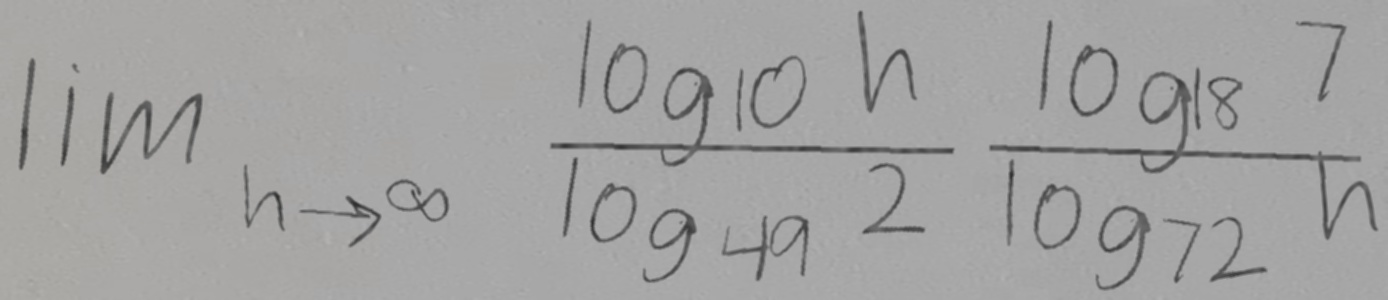 lim h→∞ log10 h / log49 2 log18 7 / log72 h